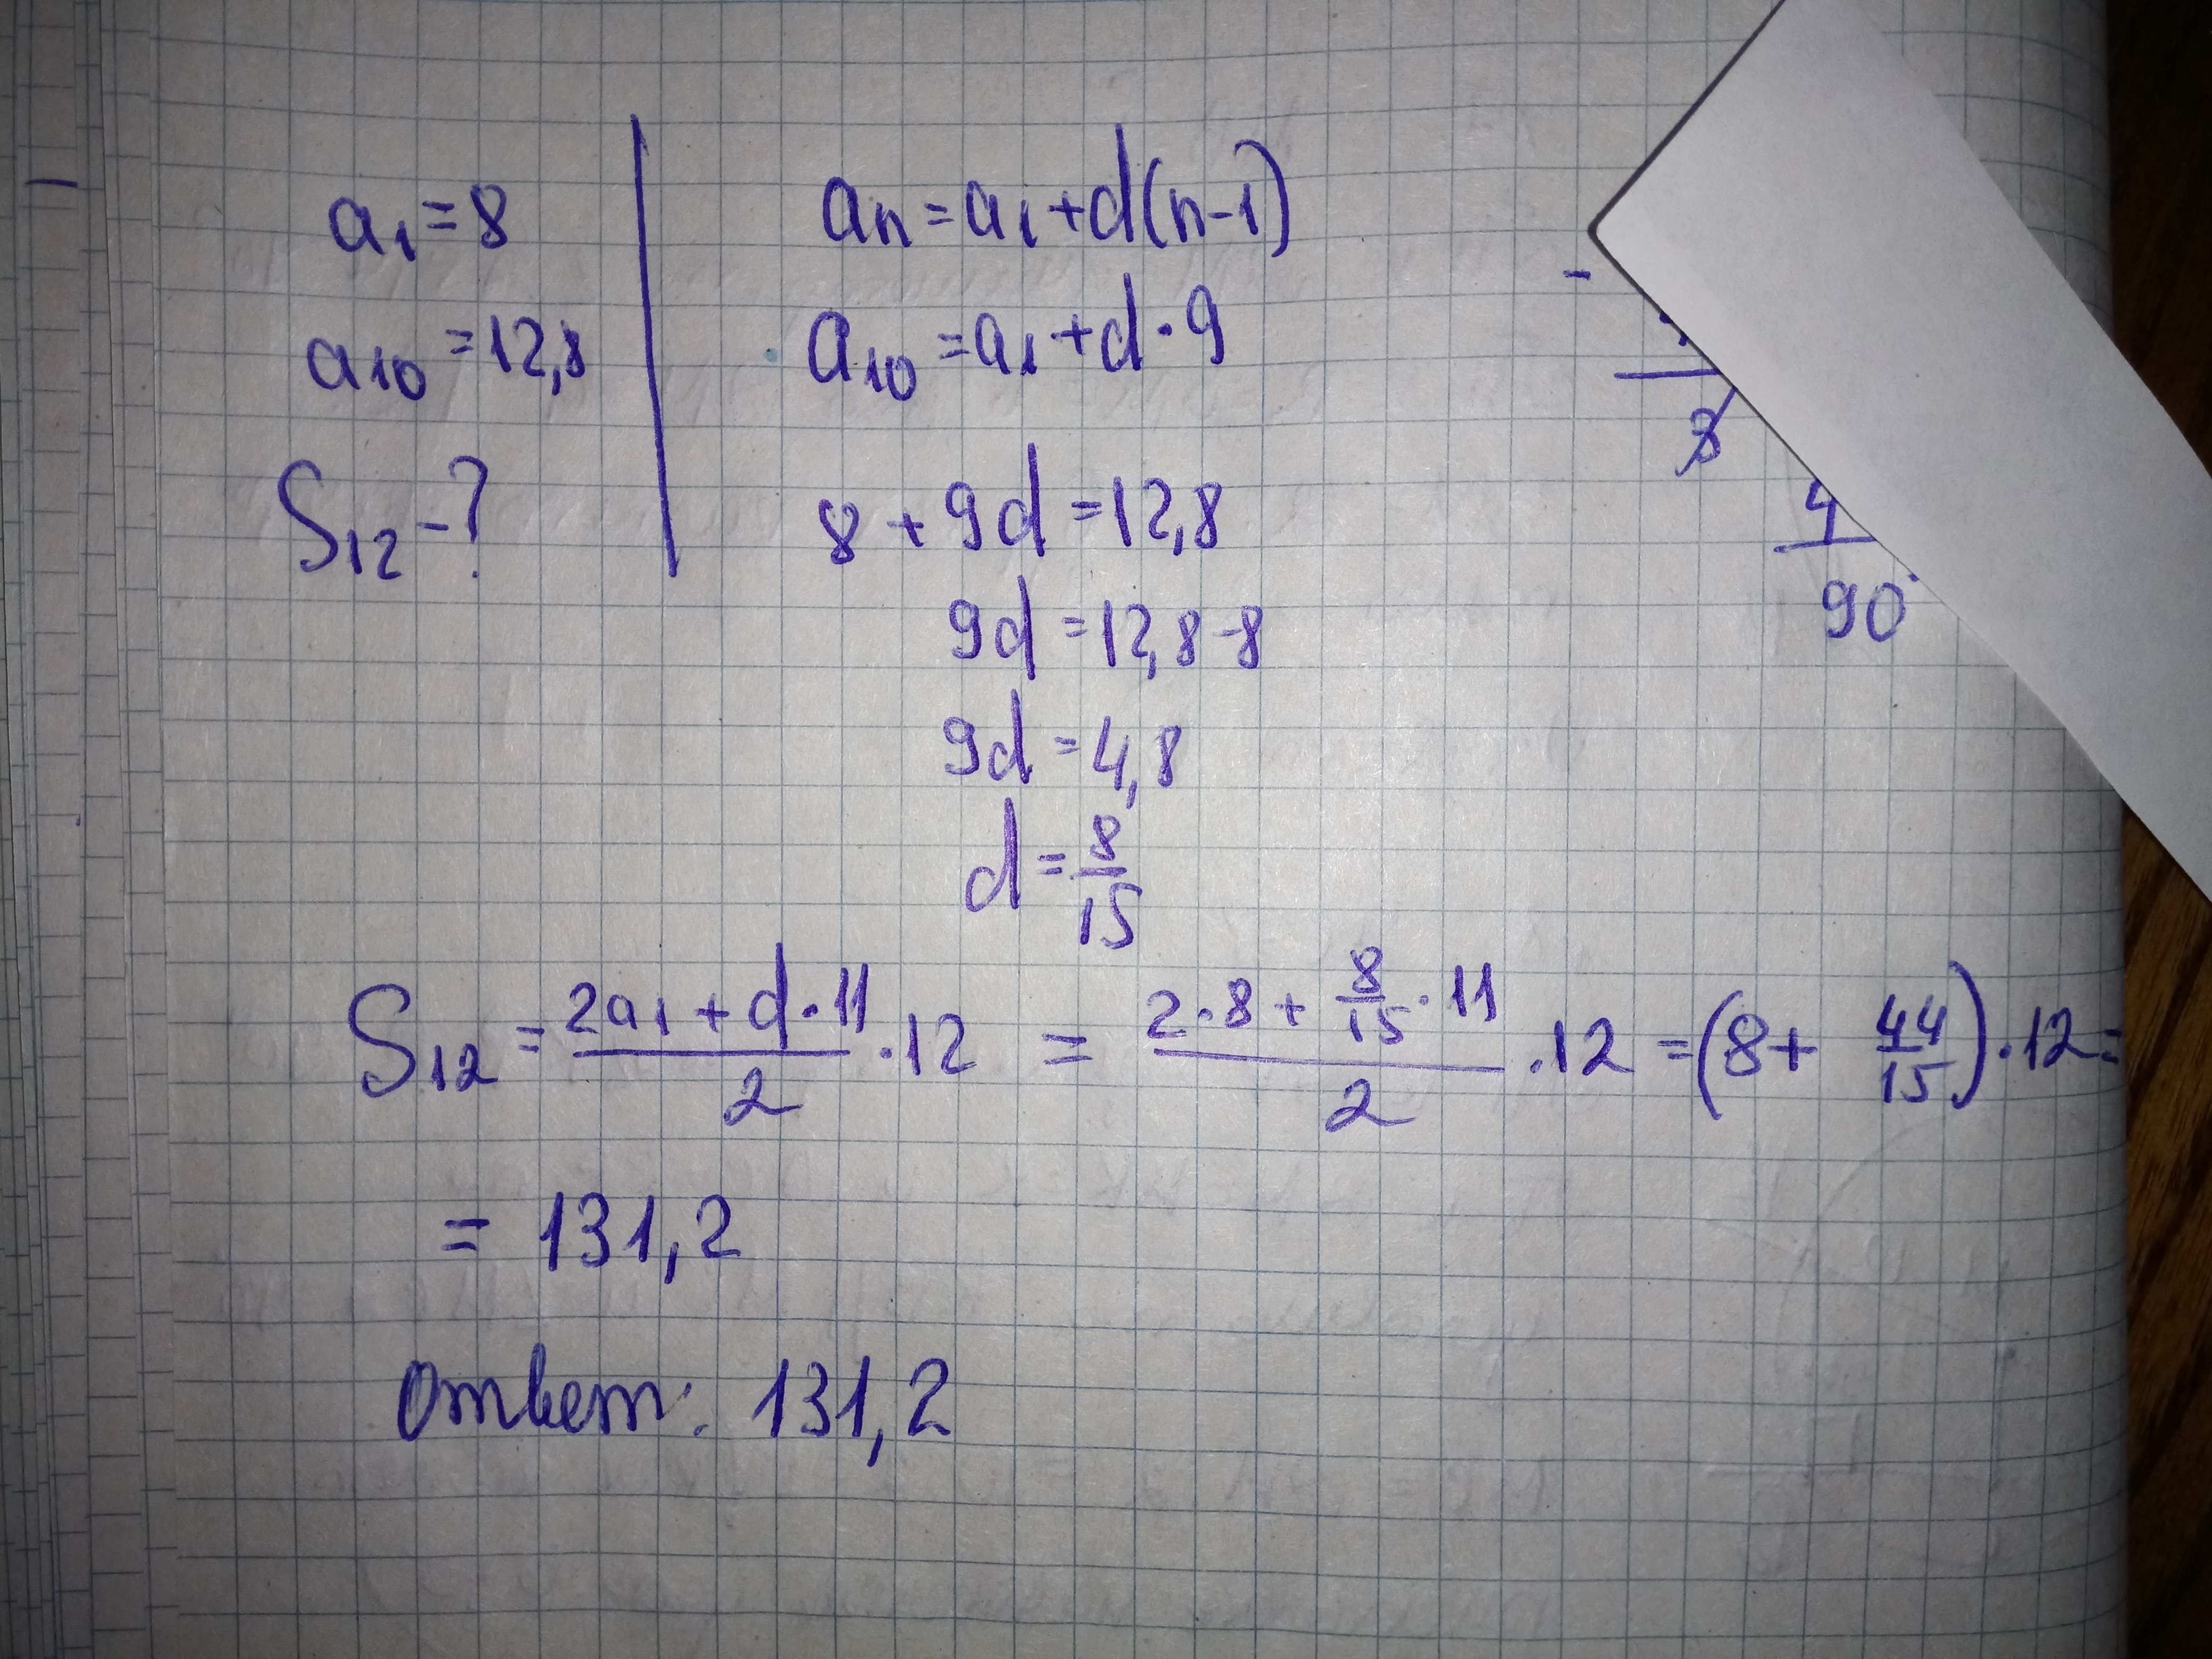 a₁ = 8
a₁₀ = 12,8
S₁₂ - ?
an = a₁ + d(n-1)
a₁₀ = a₁ + d · 9
8 + 9d = 12,8
9d = 12,8 - 8
9d = 4,8
d = 8/15
-
3
4
90
S₁₂ = (2a₁ + d · 11)/2 · 12 = (2 · 8 + 8/15 · 11)/2 · 12 = (8 + 44/15) · 12 =
= 131,2
Ответ: 131,2